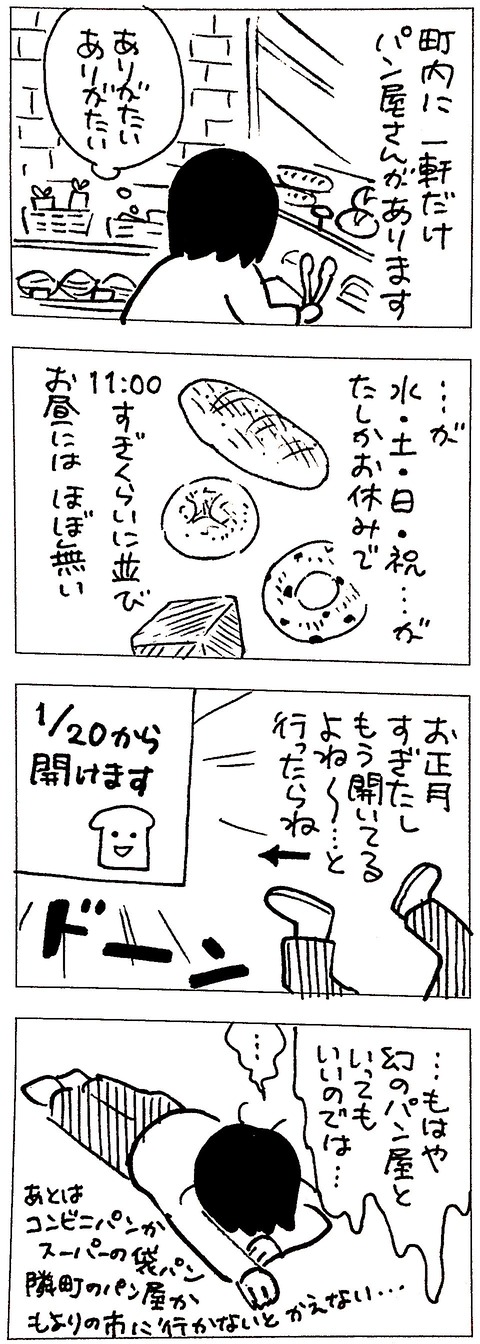 町内に一軒だけ
パン屋さんがあります
ありがたい
ありがたい
…が
水・土・日・祝…が
たしかお休みで
11:00
すぎくらいに並び
お昼にはほぼ無い
お正月
すぎたし
もう開いてる
よね〜…と
行ったらね
1/20から
開けます
ドーン
…もはや
幻のパン屋と
いっても
いいのでは…
…
あとは
コンビニパンか
スーパーの袋パン
隣町のパン屋か
もよりの市に行かないとかえない…